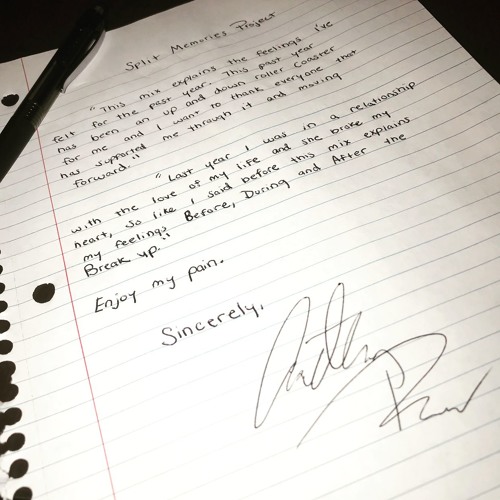 Split Memories Project
"This mix explains the feelings I've
felt for the past year. This past year
has been an up and down roller coaster
for me and I want to thank everyone that
has supported me through it and moving
forward."
"Last year I was in a relationship
with the love of my life and she broke my
heart, so like I said before this mix explains
my feelings Before, During and After the
Break up."
Enjoy my pain.
Sincerely,